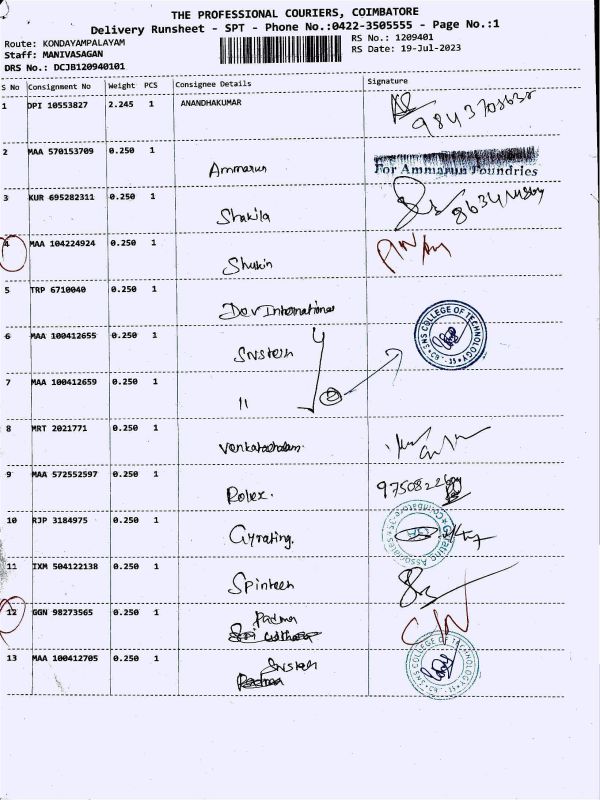 THE PROFESSIONAL COURIERS, COIMBATORE
Delivery Runsheet - SPT - Phone No.:0422-3505555 - Page No.:1
Route: KONDAYAMPALAYAM
RS No.: 1209401
Staff: MANIVASAGAN
RS Date: 19-Jul-2023
DRS No.: DCJB120940101
S No Consignment No Weight PCS Consignee Details Signature
1 DPI 10553827 2.245 1 ANANDHAKUMAR
2 MAA 570153709 0.250 1 Ammarun
For Ammarun Foundries
3 KUR 695282311 0.250 1 Shakila
4 MAA 104224924 0.250 1
5 TRP 6710040 0.250 1 Dev International
6 MAA 100412655 0.250 1
SNS COLLEGE OF TECHNOLOGY
7 MAA 100412659 0.250 1 "
8 MRT 2021771 0.250 1
9 MAA 572552597 0.250 1 Rolex.
10 RJP 3184975 0.250 1 Gyrating.
Gyrating Associates Coimbatore-35
11 IXM 504122138 0.250 1 Spintech
12 GGN 98273565 0.250 1 Padma
13 MAA 100412705 0.250 1
SNS COLLEGE OF TECHNOLOGY